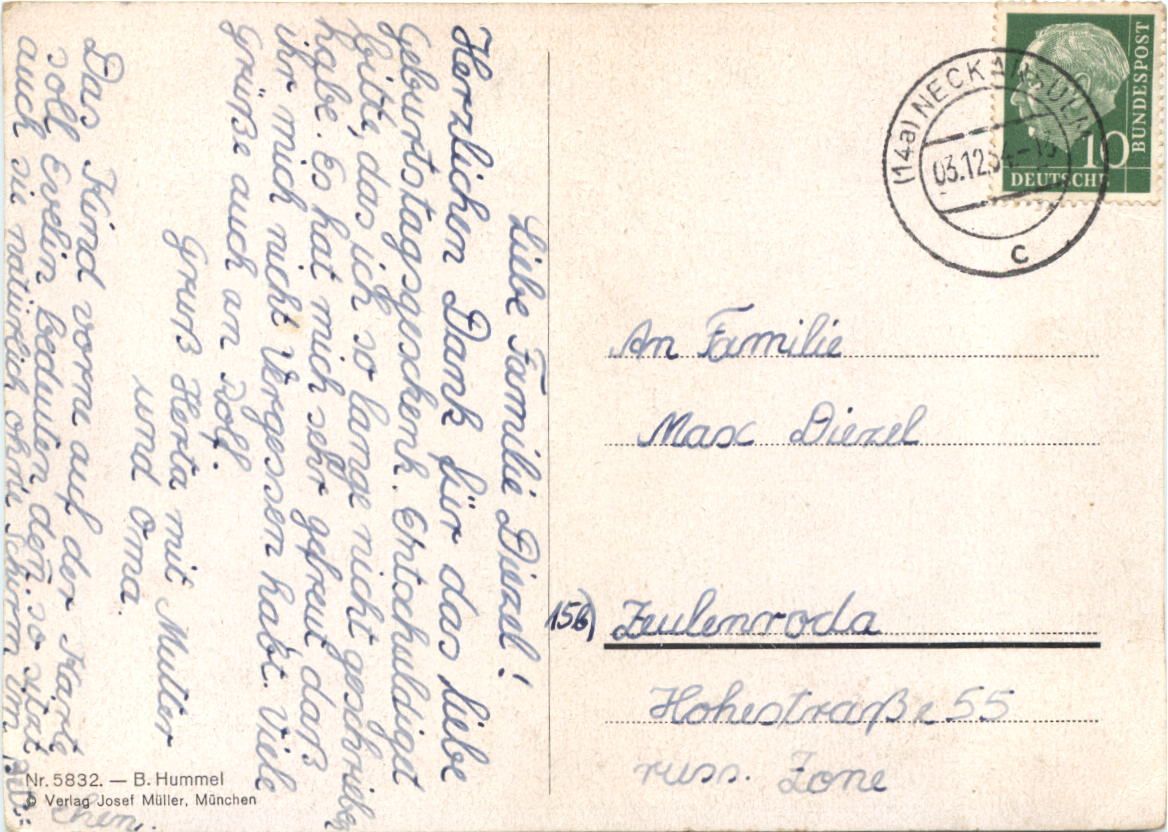 Liebe Familie Diezel!
Herzlichen Dank für das liebe
Geburtstagsgeschenk. Entschuldigt
bitte, das ich so lange nicht geschrieben
habe. Es hat mich sehr gefreut daß
ihr mich nicht Vergessen habt. Viele
Grüße auch an Rolf.
Gruß Herta mit Mutter
und Oma.
Das Kind vorn auf der Karte
soll Evelin bedeuten, den so sitzt
auch sie natürlich ohne Schirm im
chen.
Nr. 5832. — B. Hummel
© Verlag Josef Müller, München
(14a) NECKARSULM
03.12.54-18
c
10
DEUTSCHE
BUNDESPOST
An Familie
Max Diezel
15b) Zeulenroda
Hohestraße 55
russ. Zone